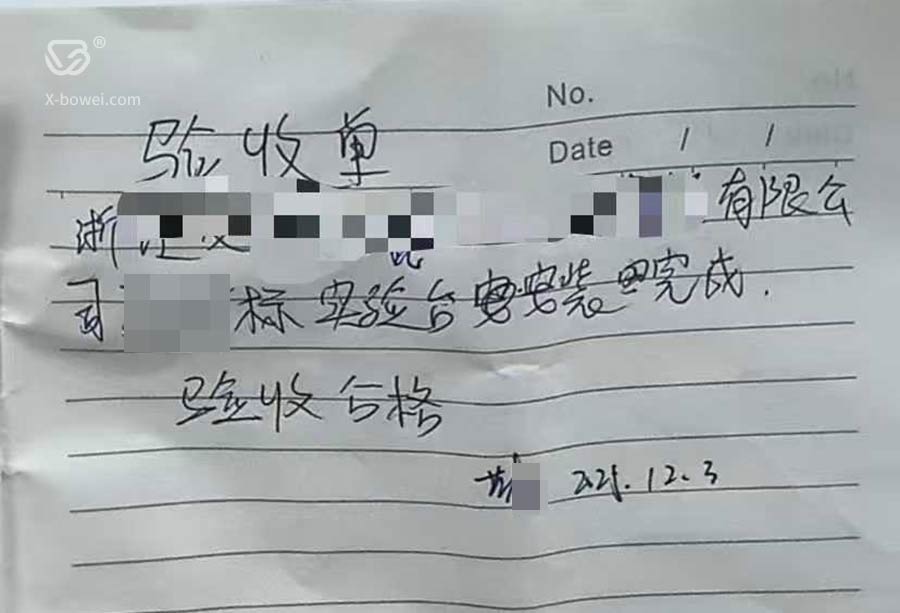 ®
X-bowei.com
No.
验收单
Date / /
浙 有限公
司 标实验台安装已完成.
验收合格
2021.12.3